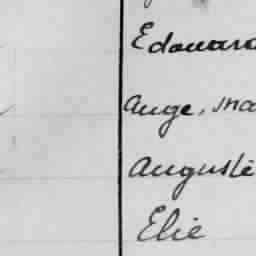 Edouard
Auge, Ma
Auguste
Elie